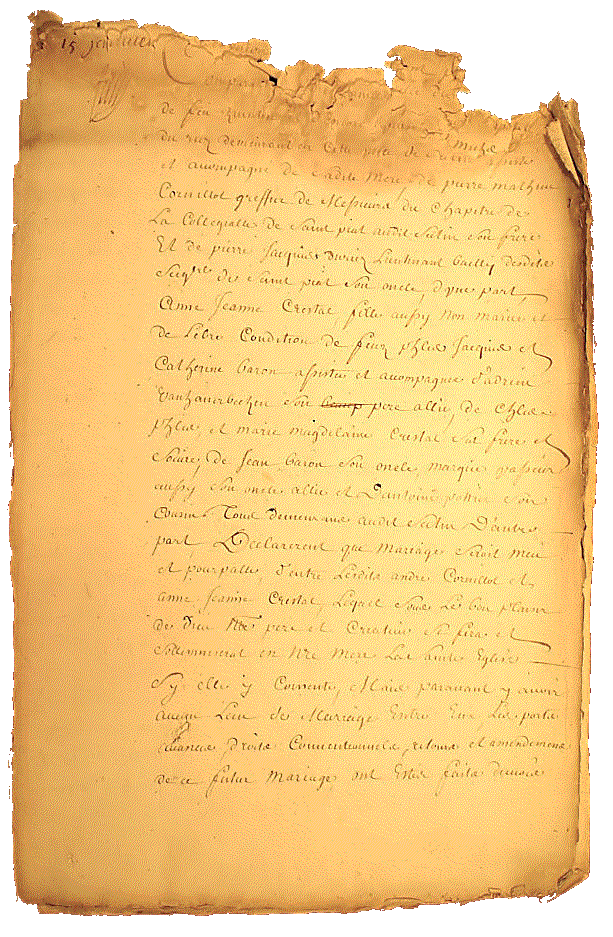 15 Janvier
Compar
de feu
du riez demeurant en cette ville de
et acompagné de ladite Mere, de pierre mathieu
Cornillot greffier de Messieurs du Chapitre de
La Collegialle de Saint piat audit Seclin son frere
Et de pierre Jacques Duriez Lieutenant bailly desdits
Siegrs de Saint piat son oncle, d'une part
Anne Jeanne Crestal fille aussy non mariée et
de Libre Condition de feux phles Jacques et
Catherine baron assistée et acompagnée d'adrien
Vanhauerbecken son pere allié, de Chles
phles, et marie magdelaine Crestal ses frere et
Soeure, de Jean baron son oncle, marque passeur
aussy son oncle allié et D'antoine pottier son
Cousin Tous demeurans audit Seclin D'autre
part Declarerent que Mariage estoit meu
et pourpallé d'entre Lesdits andre Cornillot et
anne Jeanne Crestal, Lequel Sous Le bon plaisir
de Dieu Nre pere et Createur se fera et
Sollemniserat en Nre Mere La Sainte Eglise
Sy elle y Consente, Mais paravant y avoir
aucun Lien de Marriage Entre Eux Les portz
Advances, droits Conventionnels, retours et amendemens
de ce futur Mariage, ont Estez faits devisés